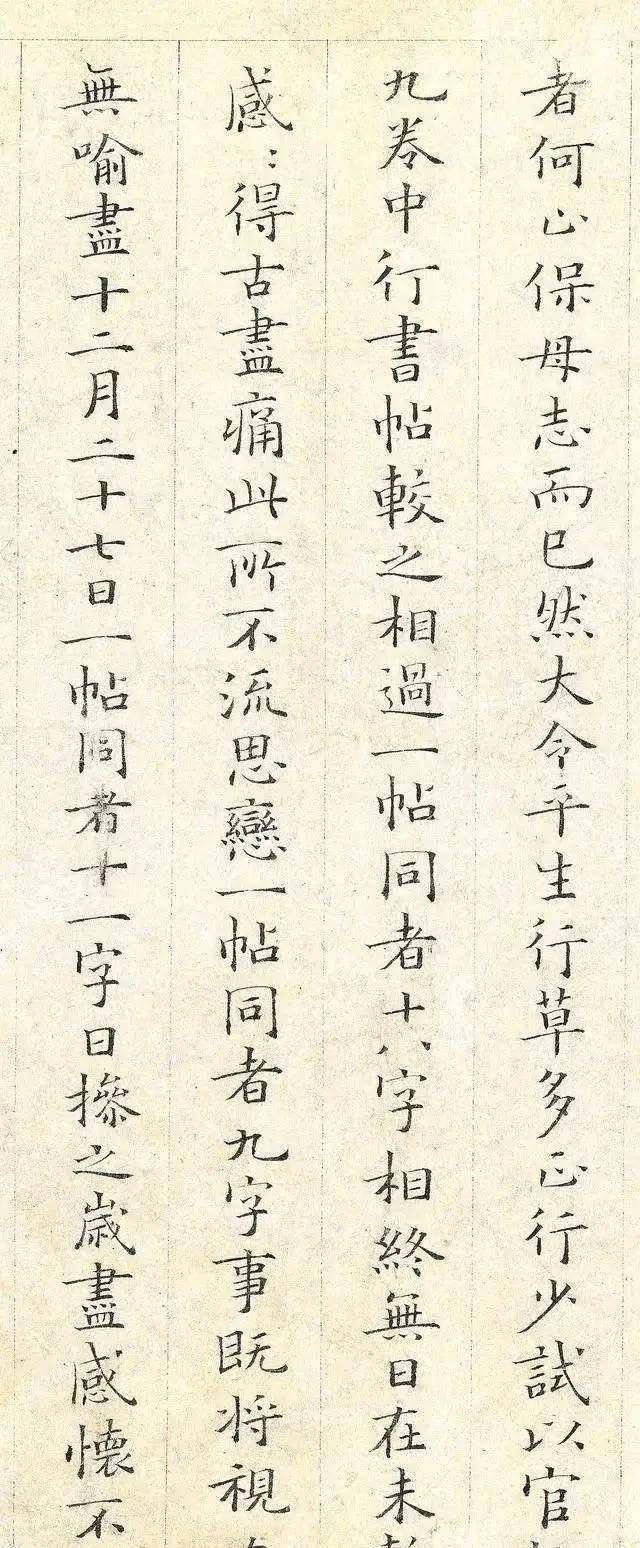 者何止保母志而已然大令平生行草多正行少試以官
九卷中行書帖較之相過一帖同者十八字相終無日在未
感〻得古盡痛此一所不流思戀一帖同者九字事既将視
無喻盡十二月二十七日一帖同者十一字日摻之嵗盡感懐不